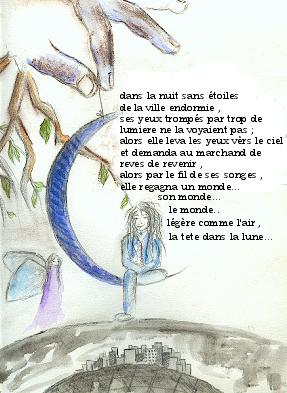 dans la nuit sans étoiles
de la ville endormie ,
ses yeux trompés par trop de
lumiere ne la voyaient pas ;
alors elle leva les yeux vèrs le ciel
et demanda au marchand de
reves de revenir ,
alors par le fil de ses songes ,
elle regagna un monde...
son monde...
le monde..
légère comme l'air ,
la tete dans la lune...